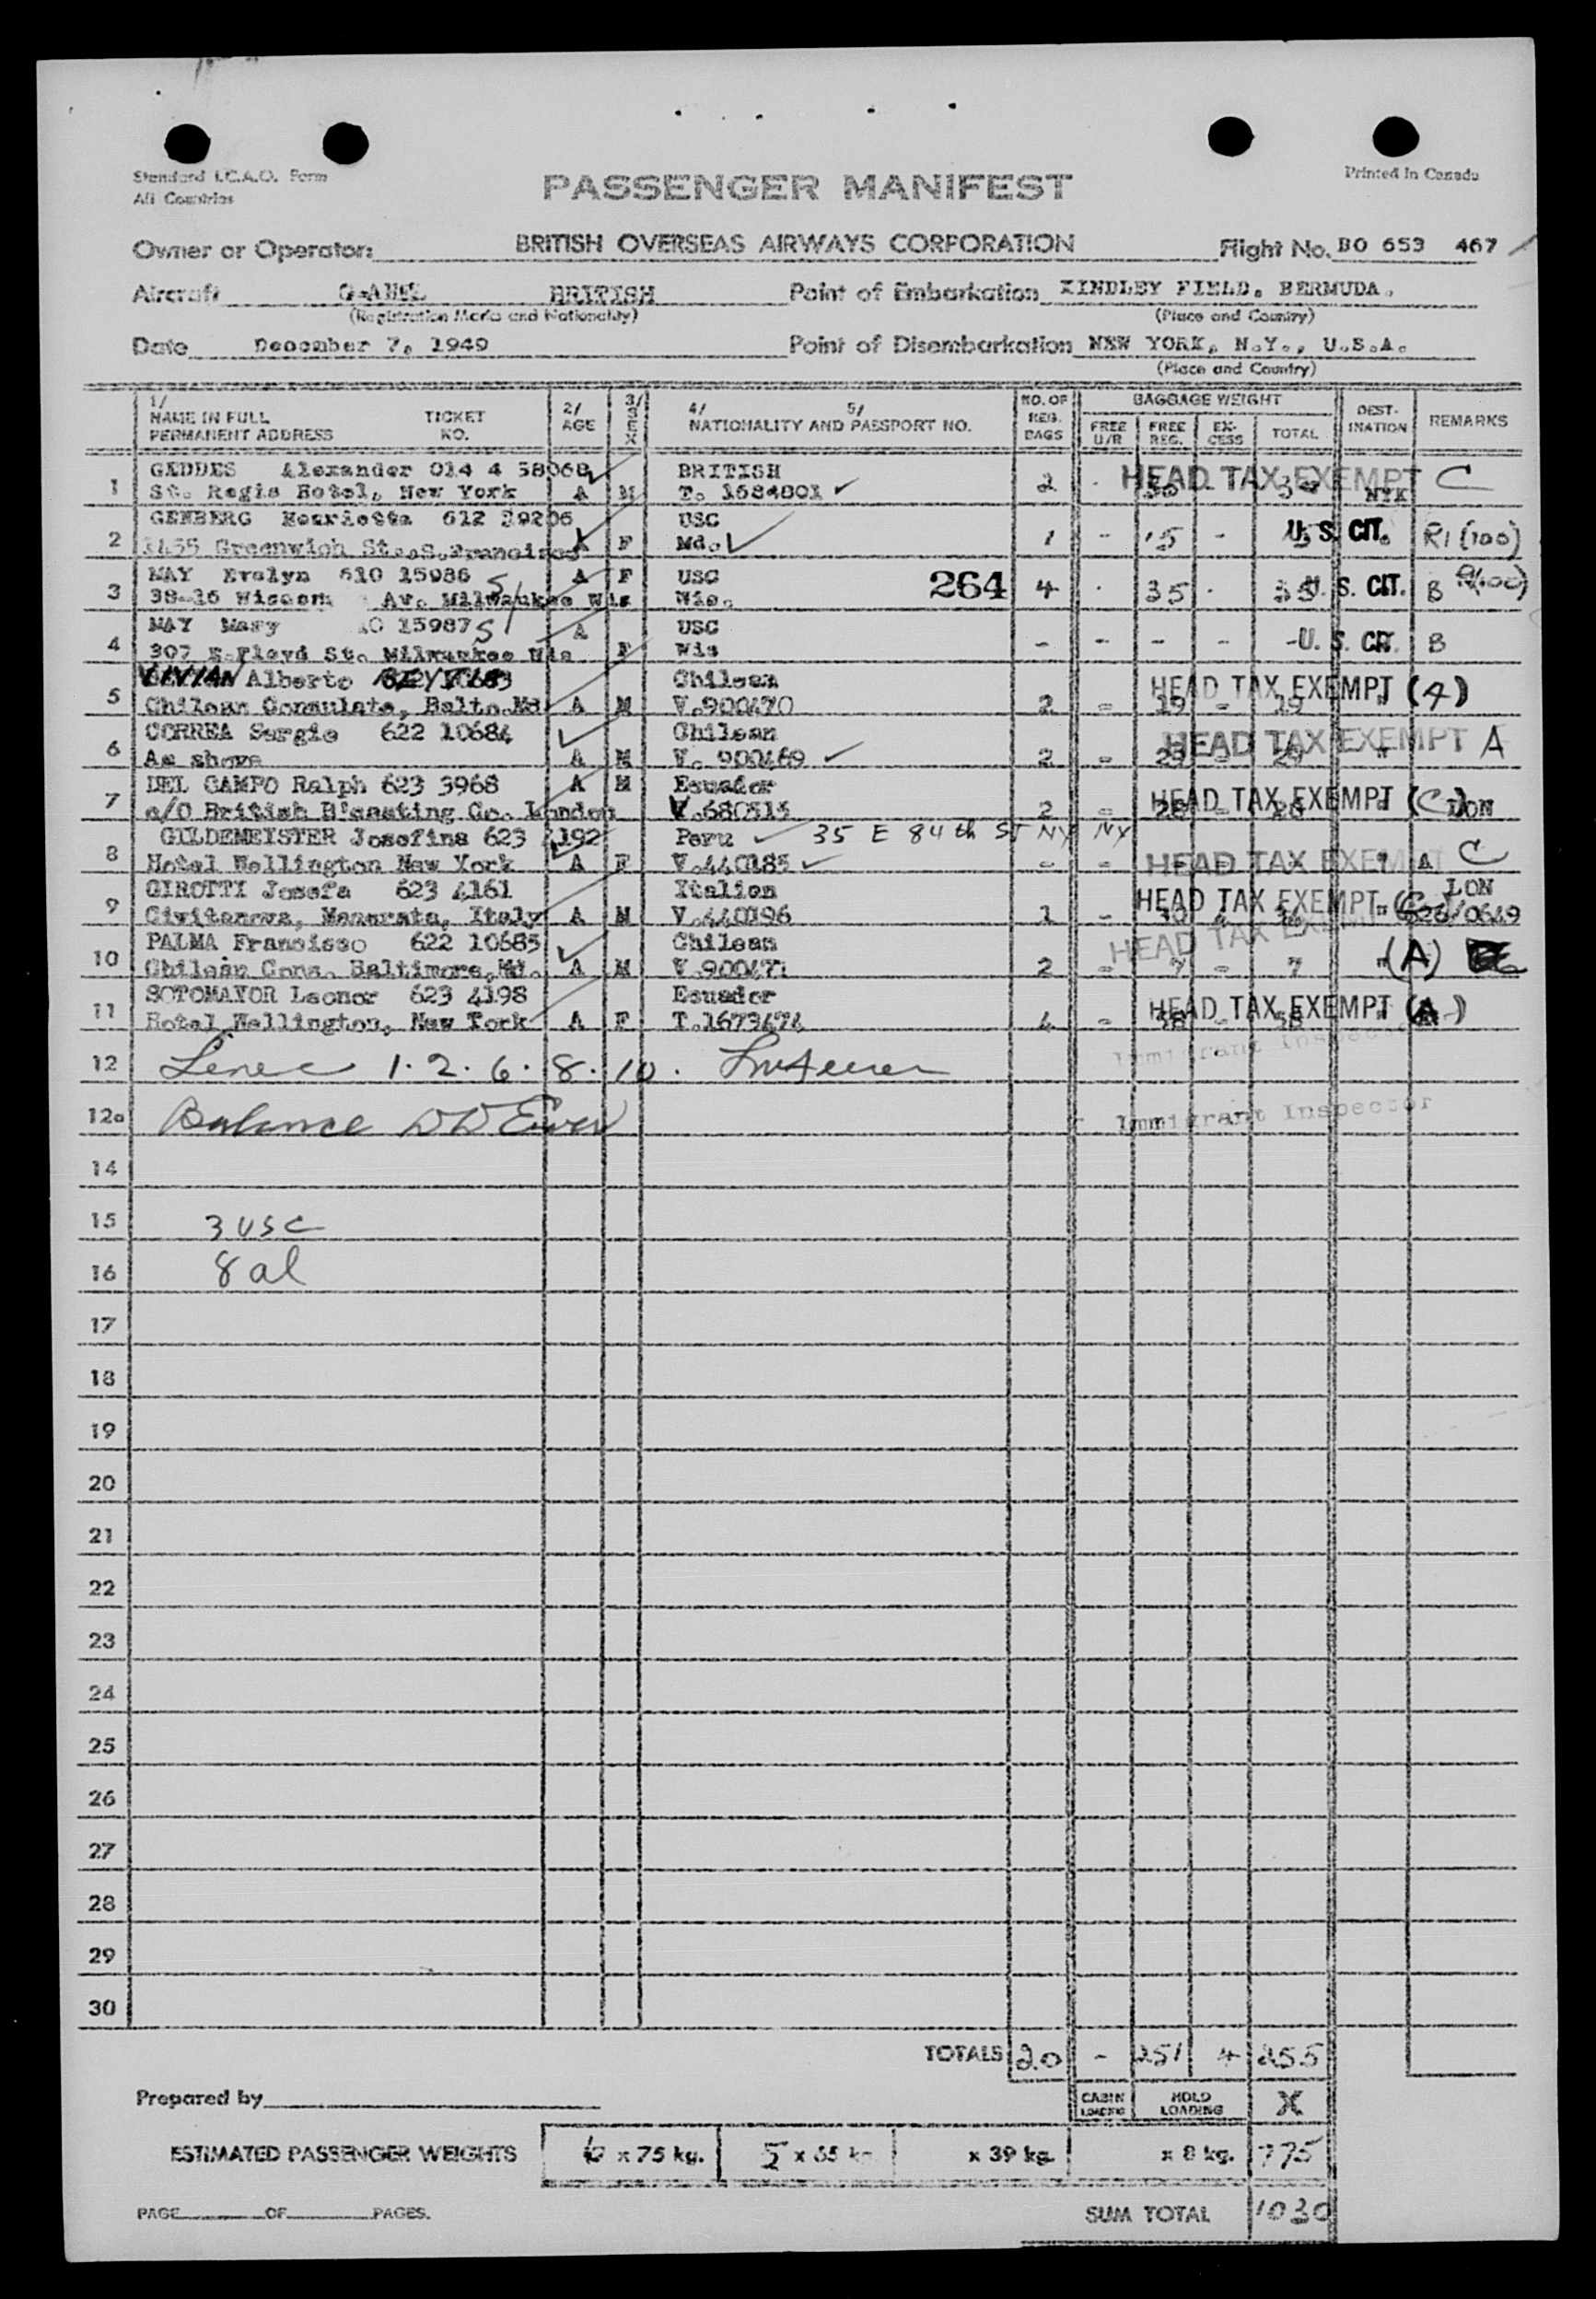 Standard I.C.A.O. Form
All Countries
PASSENGER MANIFEST
Printed in Canada
Owner or Operator: BRITISH OVERSEAS AIRWAYS CORPORATION Flight No. BO 653 467
Aircraft BRITISH Point of Embarkation KINDLEY FIELD, BERMUDA.
(Registration Marks and Nationality) (Place and Country)
Date December 7, 1949 Point of Disembarkation NEW YORK, N.Y., U.S.A.
(Place and Country)
1/ NAME IN FULL PERMANENT ADDRESS TICKET NO. 2/ AGE 3/ SEX 4/ 5/ NATIONALITY AND PASSPORT NO. NO. OF REG. BAGS BAGGAGE WEIGHT FREE U/R FREE REG. EXCESS TOTAL DESTINATION REMARKS
GEDDES Alexander 014 4 58068 BRITISH HEAD TAX EXEMPT C
1 St. Regis Hotel, New York A M T. 1684801 2 - 30 - 30 NYK
GENBERG Henrietta 612 USC
2 1455 Greenwich St., S. Francisco A F Md. 1 - 15 - U.S. CIT. R1 (100)
MAY Evelyn 610 15986 A F USC 264
3 38-16 Av. Milwaukee Wis Wis. 4 - 35 - 35 U.S. CIT. B
MAY Mary 15987 A USC
4 307 E. Floyd St. Milwaukee Wis F Wis - - - - - U.S. CIT. B
VIVIAN Alberto Chilean HEAD TAX EXEMPT (4)
5 Chilean Consulate, Balto. Md A M V.900470 2 - 19 - 19 "
CORREA Sergio 622 10684 Chilean HEAD TAX EXEMPT A
6 As above A M V. 900469 2 - 29 - 29 "
DEL CAMPO Ralph 623 3968 A M Ecuador HEAD TAX EXEMPT (C)
7 c/o British B'casting Co. London V.680515 2 - 28 - 28 " LON
GILDEMEISTER Josefina 623 4192 Peru 35 E 84th ST NY NY
8 Hotel Wellington New York A F V.440185 - - HEAD TAX EXEMPT C
GIROTTI Josefa 623 4161 Italian HEAD TAX EXEMPT LON
9 Civitanova, Macerata, Italy A M V.440196 1 - 30 4 34 "
PALMA Francisco 622 10685 Chilean HEAD TAX EXEMPT
10 Chilean Cons. Baltimore, Md. A M V.900471 2 - 7 - 7 " (A)
SOTOMAYOR Leonor 623 4198 Ecuador HEAD TAX EXEMPT (A)
11 Hotel Wellington, New York A F T.1673474 4 - 58 - 58 "
Immigrant Inspector
12 Lines 1. 2. 6. 8. 10.
12a Balance
Immigrant Inspector
14
15 3 USC
16 8 al
17
18
19
20
21
22
23
24
25
26
27
28
29
30
TOTALS 20 - 251 4 255
Prepared by CABIN LOADING HOLD LOADING X
ESTIMATED PASSENGER WEIGHTS 6 x 75 kg. 5 x 65 kg. x 39 kg. x 8 kg. 775
PAGE OF PAGES. SUM TOTAL 1030